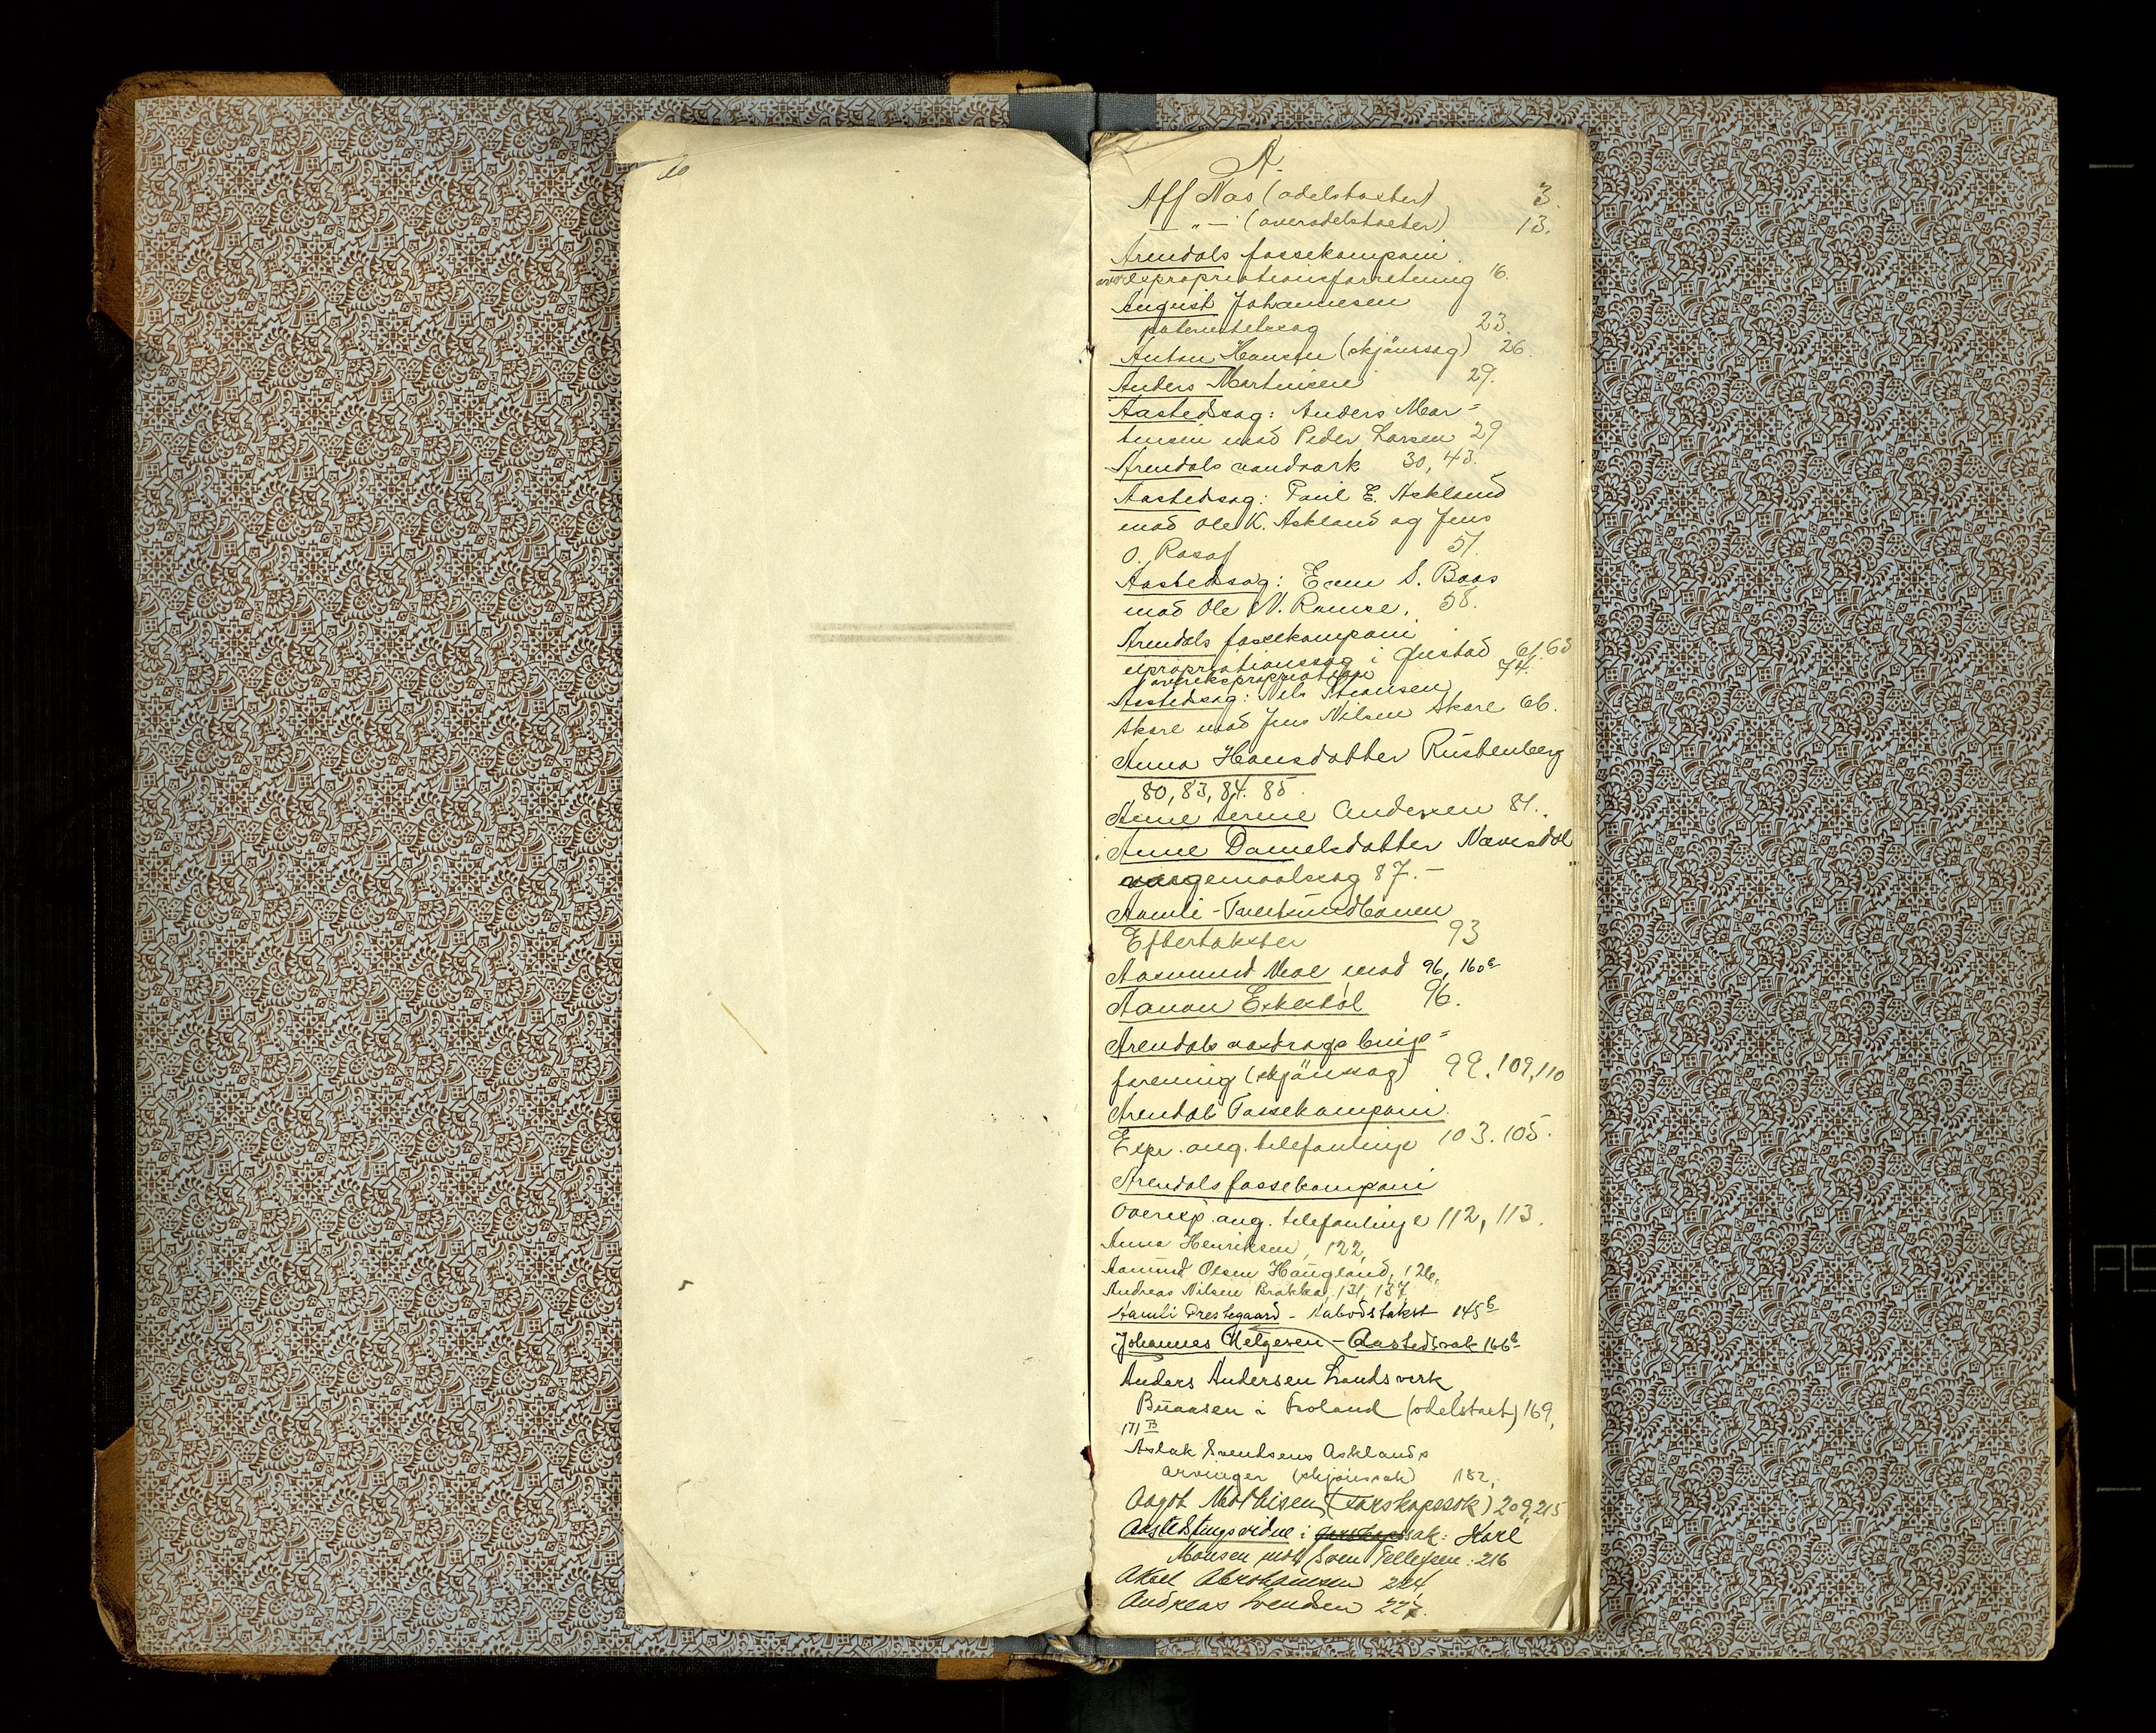 A.
Aff Nas (odelstakster) 3.
— " — (overodelstakster) 13.
Arendals fossekompani.
expropriationsforretning 16.
August Johannesen
paternitetssag 23.
Anton Hansen (skjönssag) 26.
Anders Martinsen 29.
Aastedssag: Anders Mar=
tinsen mod Peder Larsen 29
Arendals vandværk 30, 43.
Aastedssag: Paul E. Askland
mod Ole K. Askland og Jens
O. Rasaf 51.
Aastedssag: Even S. Baas
mod Ole N. Ramse. 58.
Arendals fossekompani
expropriationssag i Gjustad 61. 63
overekspropriation 74.
Aastedssag: Nils Stiansen
Skare mod Jens Nilsen Skare 66.
Anna Hansdatter Rustenberg
80, 83, 84. 85.
Anne Serine Andersen 81.
Anne Danielsdatter Nævesdal
87.—
Aamli-Tveitsundbanen
Eftertakster 93
Aasmund Moe mod 96, 160b
Aanon Eskestöl 96.
Arendals vasdrags brugs=
forening (skjönssag) 99. 109, 110
Arendals Fossekompani.
Expr. ang. telefonlinje 103. 105.
Arendals fossekompani
Overexp. ang. telefonlinje 112, 113.
Anna Henriksen, 122,
Aamund Olsen Haugland, 126,
Andreas Nilsen Brakka, 131, 137,
Aamli Prestegaard - Aabodstakst 145b
Johannes Helgesen - Aastedssak 166b
Anders Andersen Landsverk
Buaasen i Froland (odelstaxt) 169,
171B
Aslak Svendsens Asklands
arvinger (skjönssak) 182,
Aagot Mathisen (Farskapssak) 209, 215
Aastedstingsvidne i farskapssak: Karl
Monsen mot Sven Tellefsen: 216
Aksel Abrahamsen 224,
Andreas Svendsen 227.
AS